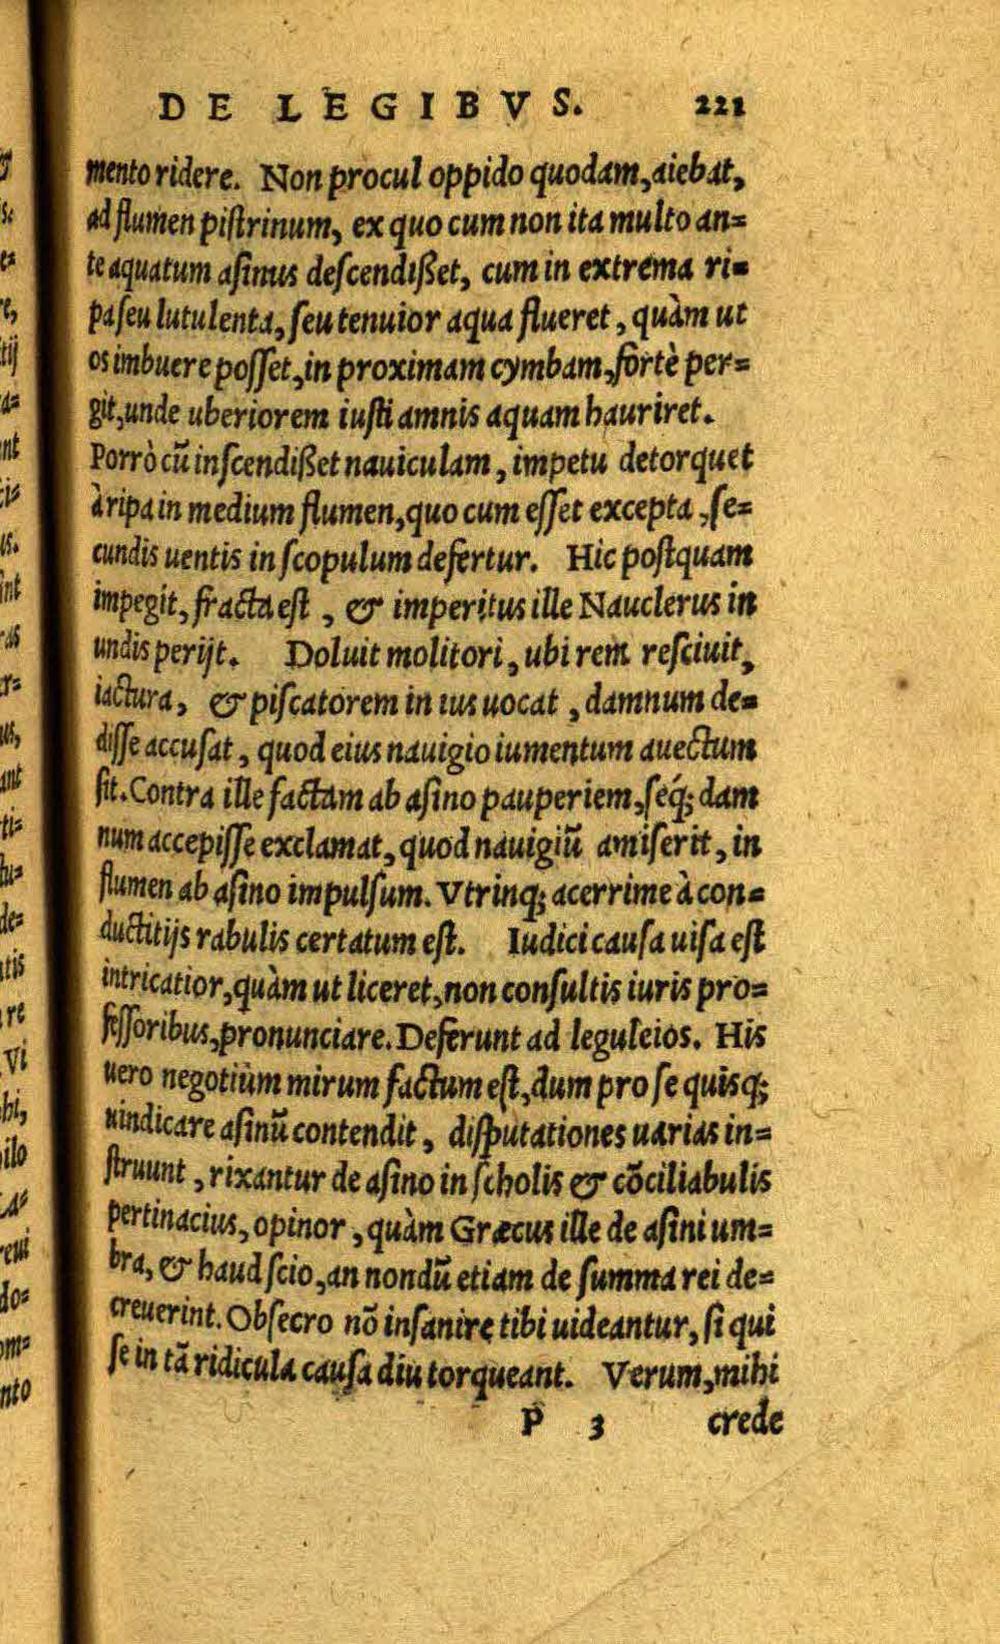 DE LEGIBVS. 221
mento ridere. Non procul oppido quodam, aiebat,
ad flumen pistrinum, ex quo cum non ita multo an=
te aquatum asinus descendißet, cum in extrema ri=
pa seu lutulenta, seu tenuior aqua flueret, quàm ut
os imbuere posset, in proximam cymbam, fortè per=
git, unde uberiorem iusti amnis aquam hauriret.
Porrò cũ inscendißet nauiculam, impetu detorquet
à ripa in medium flumen, quo cum esset excepta, se=
cundis uentis in scopulum defertur. Hic postquam
impegit, fracta est, & imperitus ille Nauclerus in
undis perijt. Doluit molitori, ubi rem resciuit,
iactura, & piscatorem in ius uocat, damnum de=
disse accusat, quod eius nauigio iumentum auectum
sit. Contra ille factam ab asino pauperiem, séq; dam
num accepisse exclamat, quod nauigiũ amiserit, in
flumen ab asino impulsum. Vtrinq; acerrime à con=
ductitijs rabulis certatum est. Iudici causa uisa est
intricatior, quàm ut liceret, non consultis iuris pro=
fessoribus, pronunciare. Deferunt ad leguleios. His
uero negotium mirum factum est, dum pro se quisq;
uindicare asinũ contendit, disputationes uarias in=
struunt, rixantur de asino in scholis & cõciliabulis
pertinacius, opinor, quàm Græcus ille de asini um=
bra, & haud scio, an nondũ etiam de summa rei de=
creuerint. Obsecro nõ insanire tibi uideantur, si qui
se in tã ridicula causa diu torqueant. Verum, mihi
P 3 crede